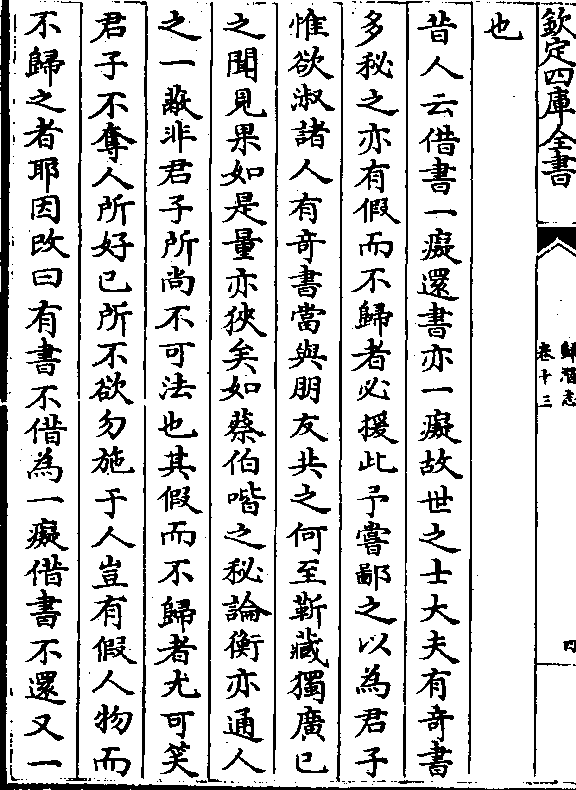 欽定四庫全書
歸潛志
卷十三
四
也
昔人云借書一癡還書亦一癡故世之士大夫有奇書
多秘之亦有假而不歸者必援此予嘗鄙之以為君子
惟欲淑諸人有奇書當與朋友共之何至靳藏獨廣已
之聞見果如是量亦狹矣如蔡伯喈之秘論衡亦通人
之一蔽非君子所尚不可法也其假而不歸者尤可笑
君子不奪人所好已所不欲勿施于人豈有假人物而
不歸之者耶因改曰有書不借為一癡借書不還又一